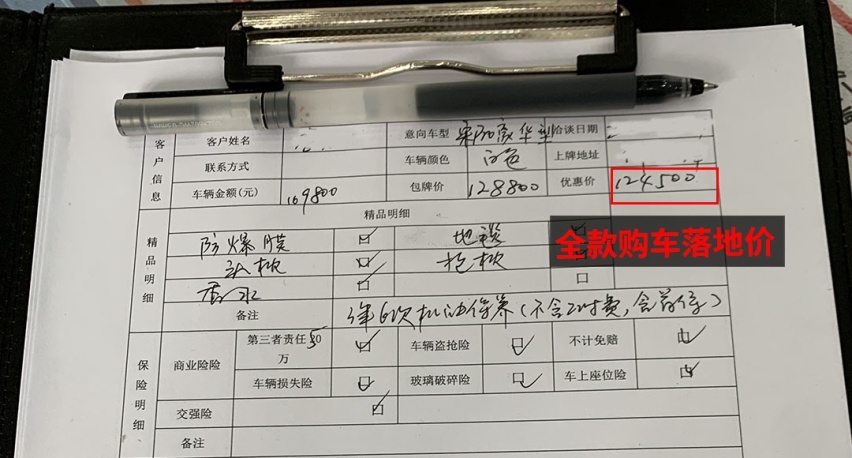 客户信息
客户姓名 意向车型 豪华型 洽谈日期
联系方式 车辆颜色 白色 上牌地址
车辆金额(元) 109800 包牌价 128800 优惠价 124500
精品明细
精品明细
全款购车落地价
防爆膜 地毯
头枕 抱枕
香水
备注 6次机油保养(不含工时费,含
保险明细
商业险险 第三者责任50万 车辆盗抢险 不计免赔
车辆损失险 玻璃破碎险 车上座位险
交强险
备注